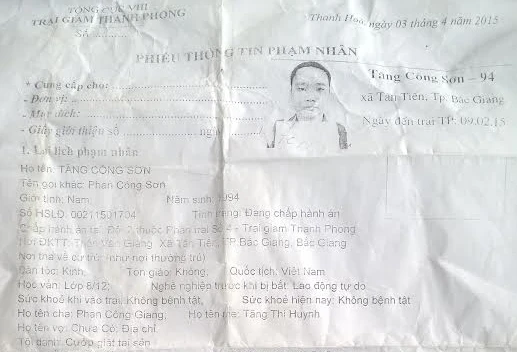 TỔNG CỤC VIII
TRẠI GIAM THANH PHONG
Số
Thanh Hoá, ngày 03 tháng 4 năm 2015
PHIẾU THÔNG TIN PHẠM NHÂN
* Cung cấp cho:
- Đơn vị:
- Mục đích:
- Giấy giới thiệu số ngày
Tăng Công Sơn – 94
xã Tân Tiến, Tp. Bắc Giang
Ngày đến trại TP: 09.02.15
1. Lai lịch phạm nhân
Họ tên: TĂNG CÔNG SƠN
Tên gọi khác: Phan Công Sơn
Giới tính: Nam Năm sinh: 1994
Số HSLĐ: Tình trạng: Đang chấp hành án
Chấp hành án tại: Đội 2, thuộc Phân trại Số 4 - Trại giam Thanh Phong
Nơi ĐKTT: Thôn Văn Giàng, Xã Tân Tiến, TP Bắc Giang, Bắc Giang
Nơi tha về cư trú: (như nơi thường trú)
Dân tộc: Kinh, Tôn giáo: Không, Quốc tịch: Việt Nam
Học vấn: Lớp 6/12; Nghề nghiệp trước khi bị bắt: Lao động tự do
Sức khoẻ khi vào trại: Không bệnh tật, Sức khoẻ hiện nay: Không bệnh tật
Họ tên cha: Phan Công Giang, Họ tên mẹ: Tăng Thị Huynh
Họ tên vợ: Chưa Có, Địa chỉ:
Tội danh: Cướp giật tài sản